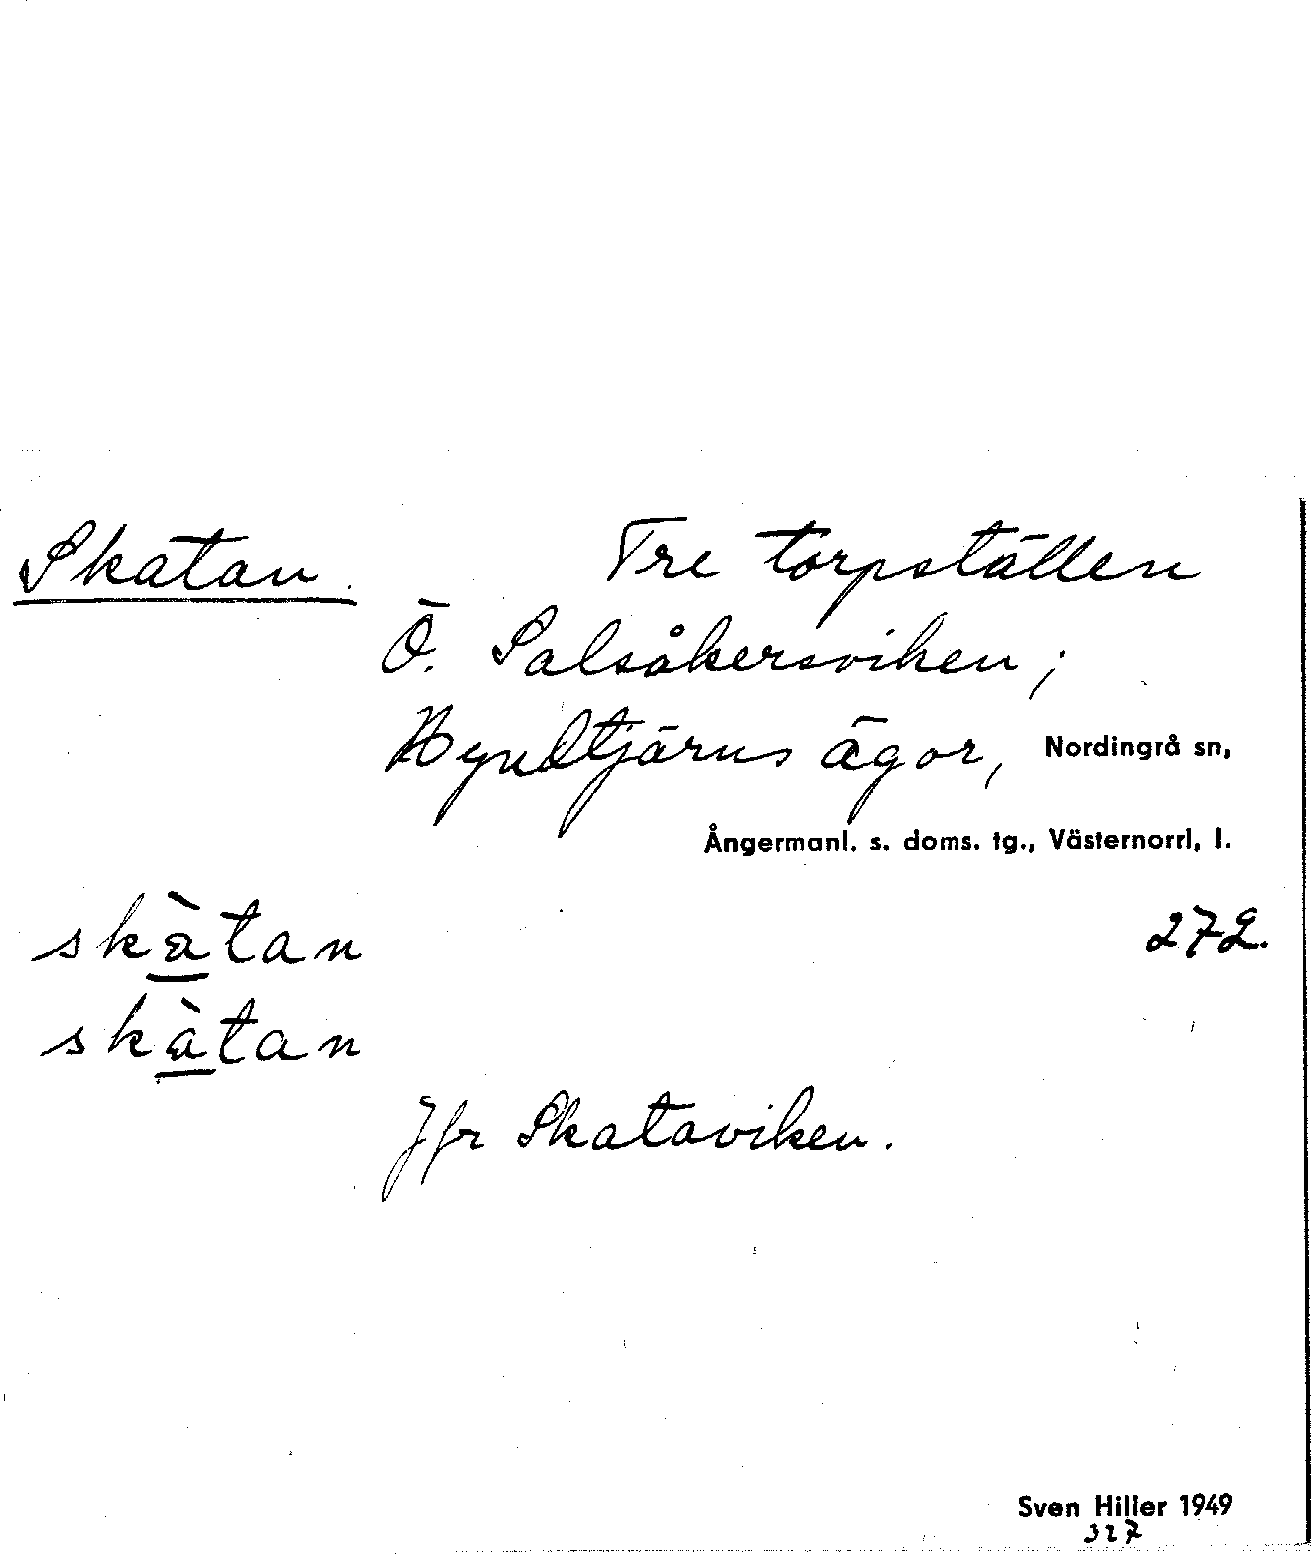 Skatan. Tre torpställen
Ö. Salsåkersviken;
Hyndtjärns ägor, Nordingrå sn,
Ångermanl. s. doms. tg., Västernorrl. l.
skàtan 272.
skàtan
Jfr Skataviken.
Sven Hiller 1949
327